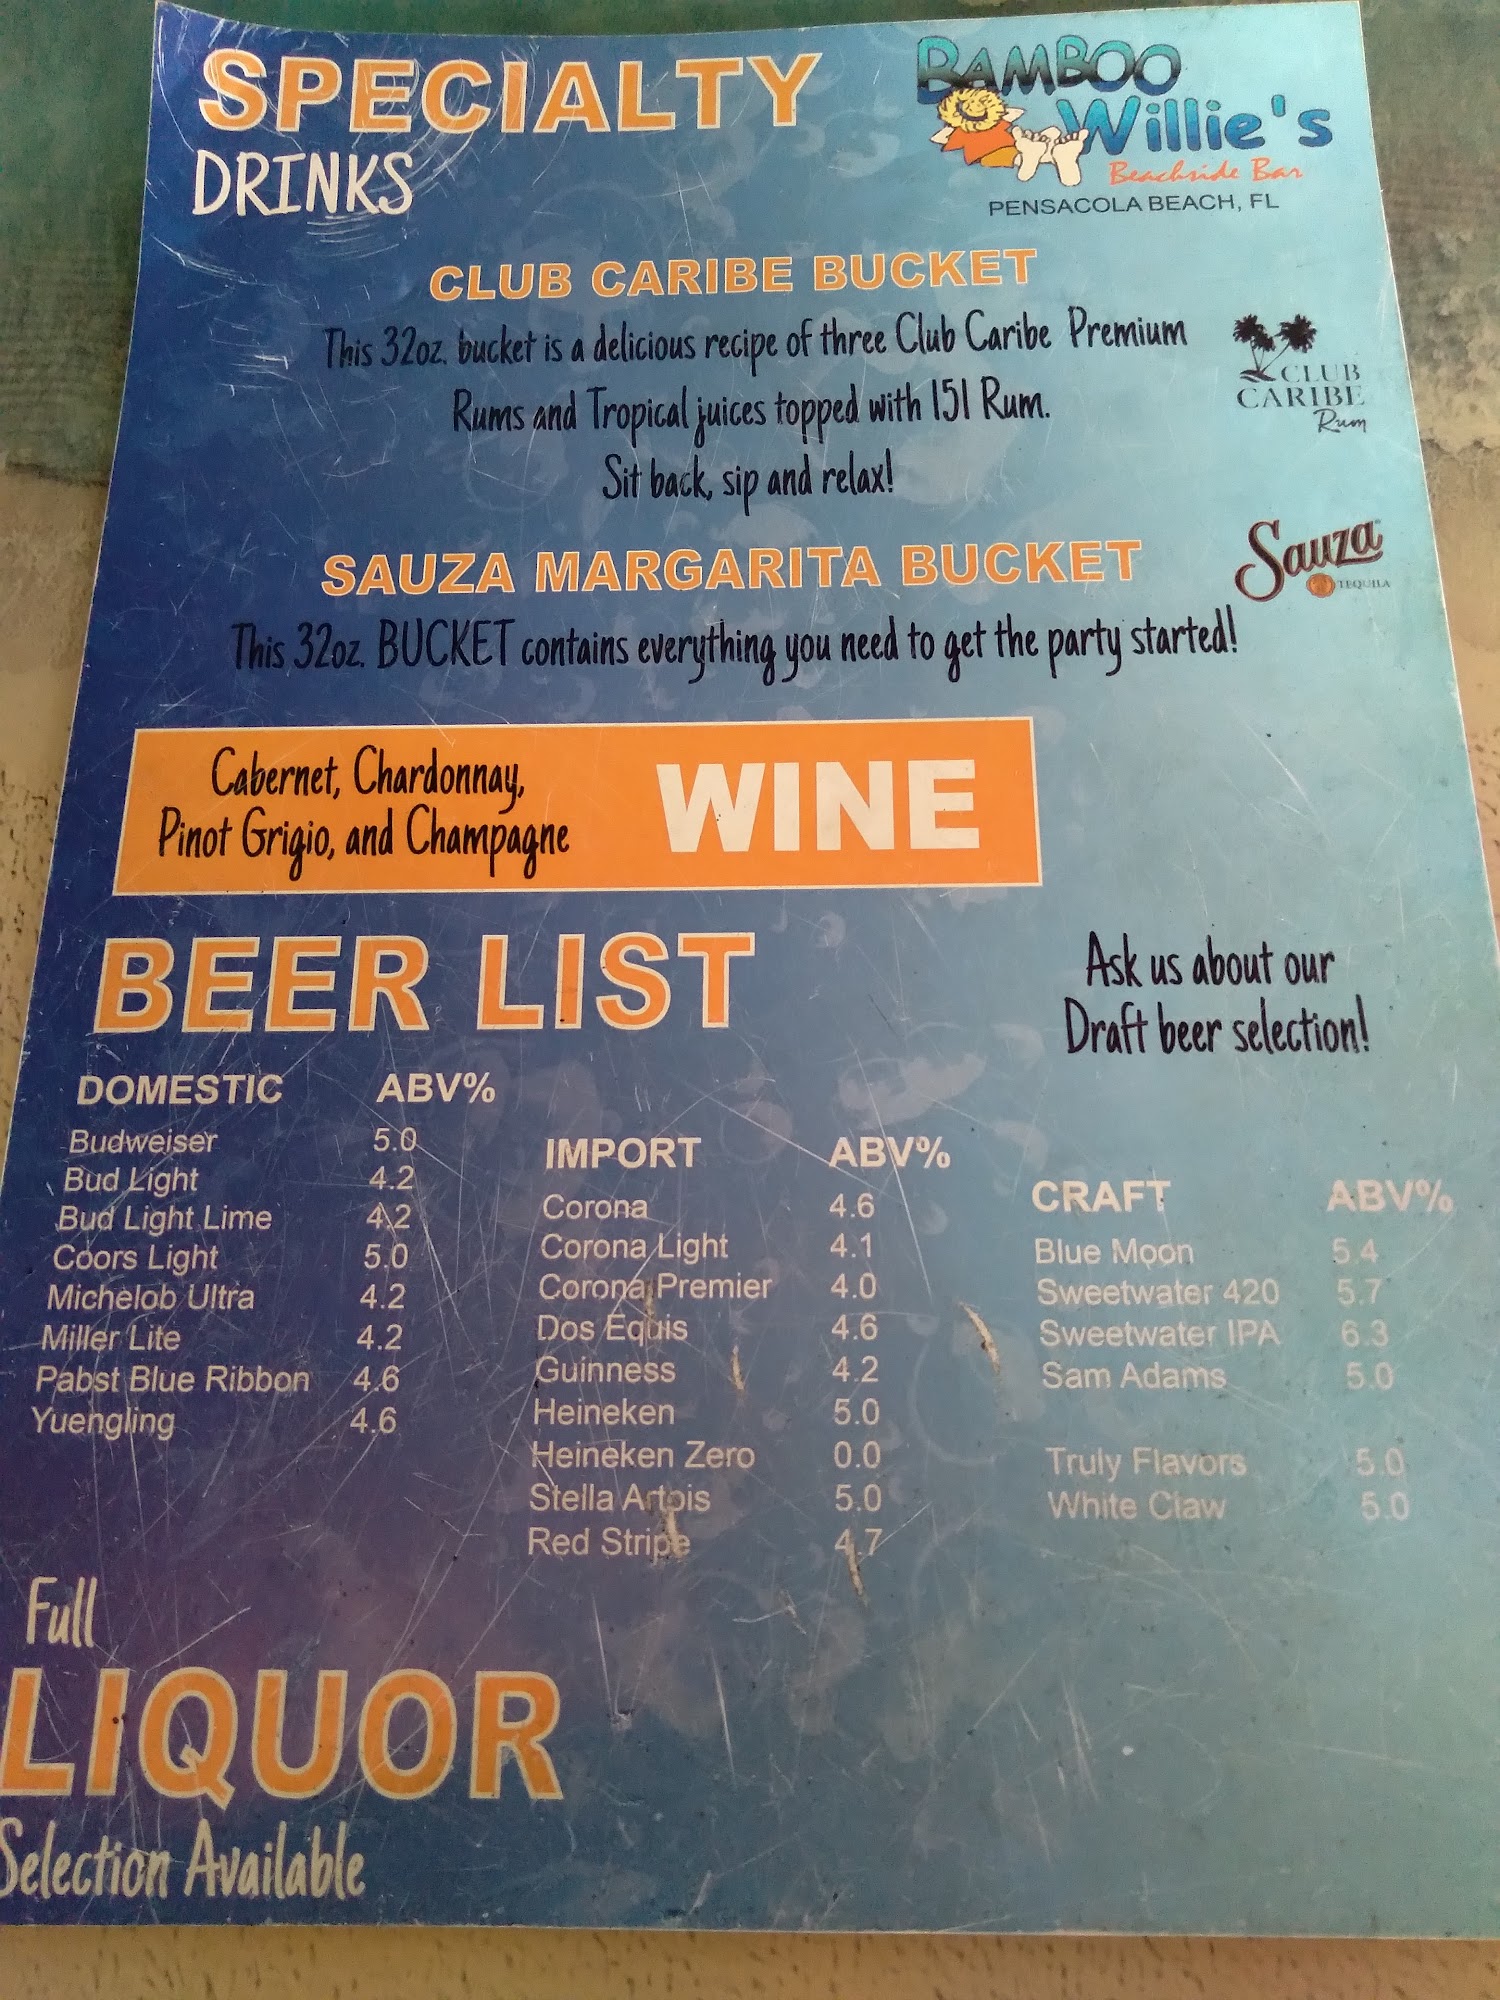 SPECIALTY
DRINKS
BAMBOO
Willie's
Beachside Bar
PENSACOLA BEACH, FL
CLUB CARIBE BUCKET
This 32oz. bucket is a delicious recipe of three Club Caribe Premium
Rums and Tropical juices topped with 151 Rum.
Sit back, sip and relax!
CLUB
CARIBE
Rum
SAUZA MARGARITA BUCKET
This 32oz. BUCKET contains everything you need to get the party started!
Sauza
TEQUILA
Cabernet, Chardonnay,
Pinot Grigio, and Champagne
WINE
BEER LIST
Ask us about our
Draft beer selection!
DOMESTIC ABV%
Budweiser 5.0
Bud Light 4.2
Bud Light Lime 4.2
Coors Light 5.0
Michelob Ultra 4.2
Miller Lite 4.2
Pabst Blue Ribbon 4.6
Yuengling 4.6
IMPORT ABV%
Corona 4.6
Corona Light 4.1
Corona Premier 4.0
Dos Equis 4.6
Guinness 4.2
Heineken 5.0
Heineken Zero 0.0
Stella Artois 5.0
Red Stripe 4.7
CRAFT ABV%
Blue Moon 5.4
Sweetwater 420 5.7
Sweetwater IPA 6.3
Sam Adams 5.0
Truly Flavors 5.0
White Claw 5.0
Full
LIQUOR
Selection Available